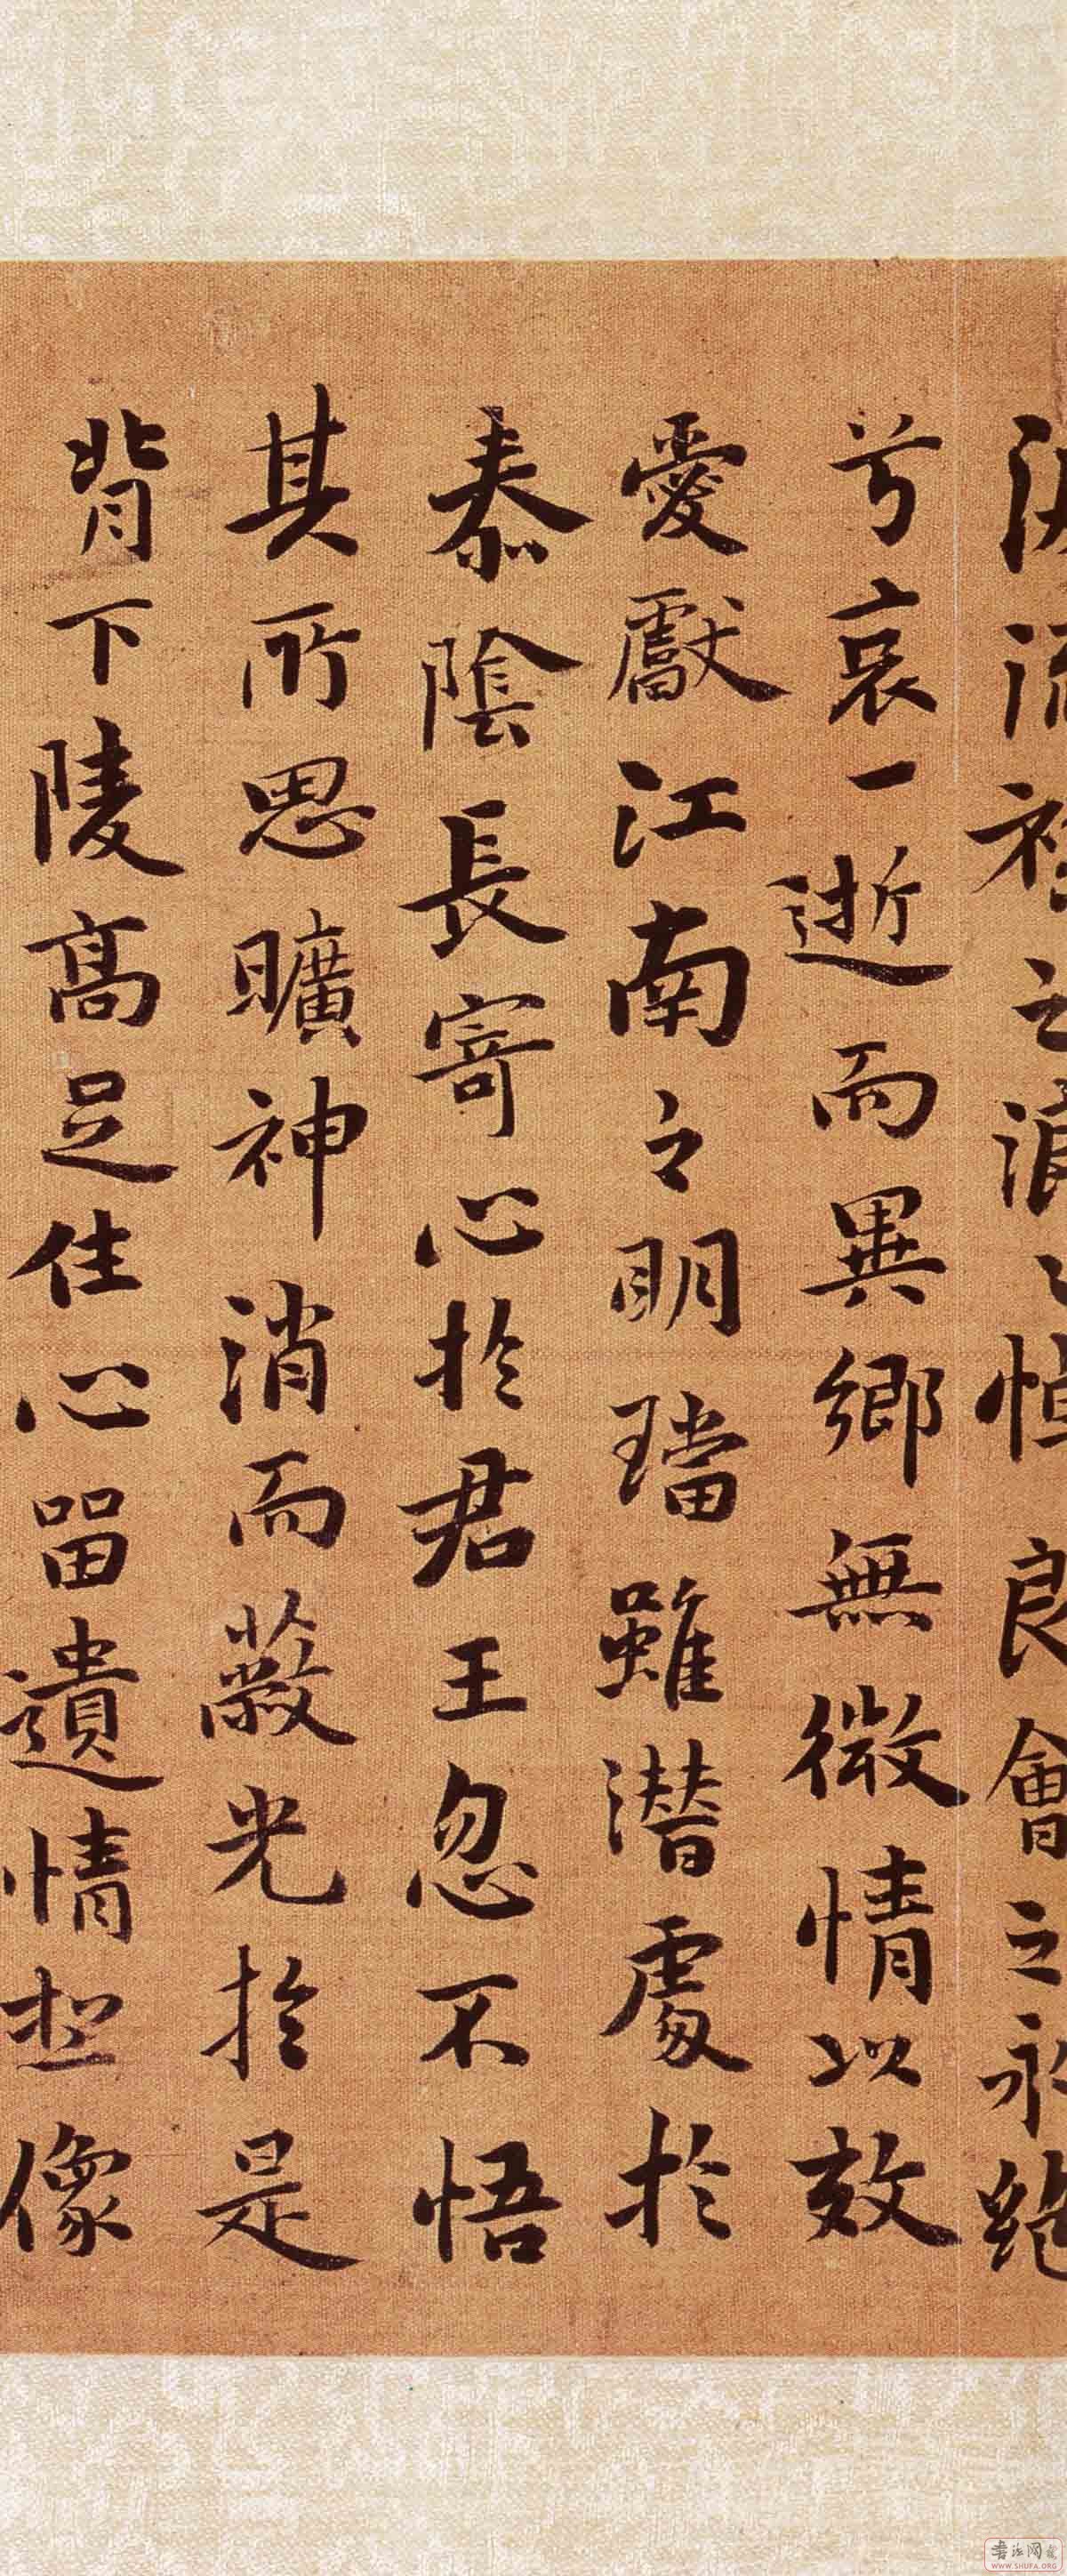 流之浪々悼良會之永絕
兮哀一逝而異鄉無微情以效
愛獻江南之明璫雖潛處於
泰陰長寄心於君王忽不悟
其所思曠神消而蔽光於是
背下陵高足住心留遺情想像
WWW.SHUFA.ORG